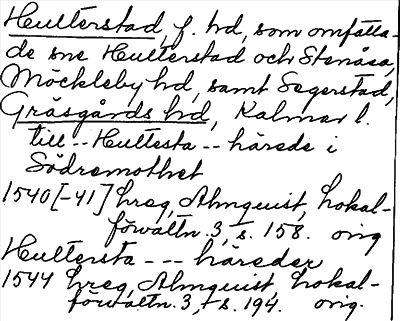 Hulterstad, f. hd, som omfatta-
de sne Hulterstad och Stenåsa,
Möckleby hd, samt Segerstad,
Gräsgårds hd, Kalmar l.
till -- Hultesta -- härede i
Södremothet
1540 [-41] hreg, Almquist, Lokal-
förvaltn. 3, s. 158. orig
Hultersta --- häreder
1544 hreg, Almquist, Lokal-
förvaltn. 3, s. 194. orig.